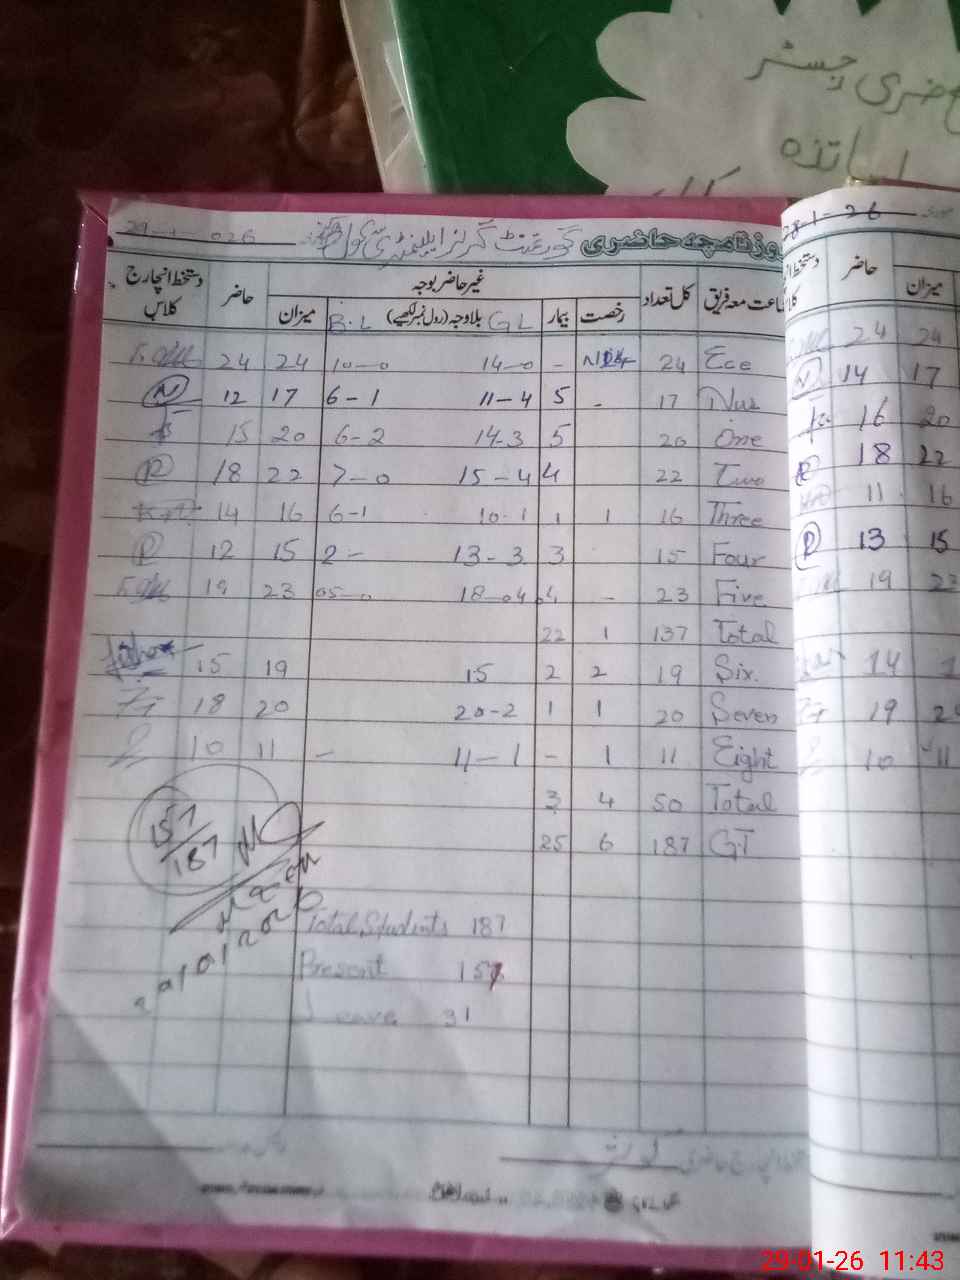 حاضری رجسٹر
اساتذہ
29-1-026 گورنمنٹ گرلز ایلیمنٹری سکول روزنامچہ حاضری
جماعت معہ فریق کل تعداد غیر حاضر بوجہ حاضر دستخط انچارج کلاس
رخصت بیمار بلاوجہ (رول نمبر لکھیے) میزان
B.L GL
24 24 10-0 14-0 - Nil 24 Ece
N 12 17 6-1 11-4 5 - 17 Nur
15 20 6-2 14-3 5 20 One
R 18 22 7-0 15-4 4 22 Two
14 16 6-1 10-1 1 1 16 Three
R 12 15 2- 13-3 3 15 Four
19 23 05-0 18-04 04 - 23 Five
22 1 137 Total
15 19 15 2 2 19 Six.
18 20 20-2 1 1 20 Seven
10 11 - 11-1 - 1 11 Eight
3 4 50 Total
25 6 187 G.T
157
187
Total Students 187
Present 157
Leave 31
28-1-26
دستخط انچارج کلاس حاضر میزان
24 24
N 14 17
16 20
R 18 22
11 16
R 13 15
19 23
14
19
10 11
29-01-26 11:43